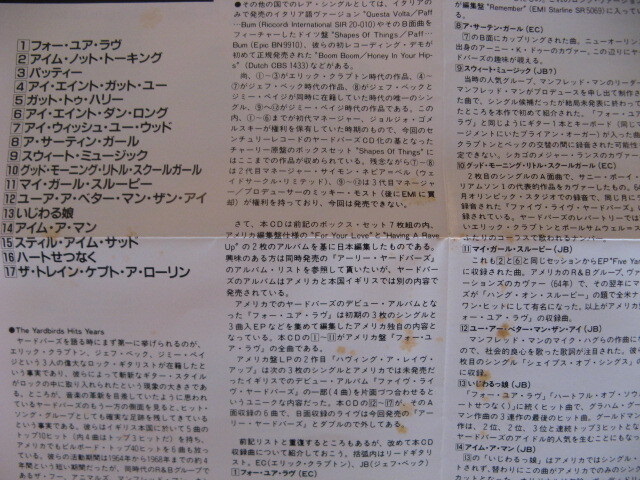 1 フォー・ユア・ラヴ
2 アイム・ノット・トーキング
3 パッティー
4 アイ・エイント・ガット・ユー
5 ガット・トゥ・ハリー
6 アイ・エイント・ダン・ロング
7 アイ・ウィッシュ・ユー・ウッド
8 ア・サーテン・ガール
9 スウィート・ミュージック
10 グッド・モーニング・リトル・スクールガール
11 マイ・ガール・スルーピー
12 ユーア・ア・ベター・マン・ザン・アイ
13 いじわる娘
14 アイム・ア・マン
15 スティル・アイム・サッド
16 ハートせつなく
17 ザ・トレイン・ケプト・ア・ローリン
●The Yardbirds Hits Years
ヤードバーズを語る時にまず第一に挙げられるのが、
エリック・クラプトン、ジェフ・ベック、ジミー・ペイ
ジという3人の偉大なロック・ギタリストが在籍したと
いう事実であり、彼らによって斬新なギター・スタイル
がロックの中に取り入れられたという現象の大きさであ
る。ところが、音楽の革新を目指していたように思われ
ているヤードバーズのもう一方の側面を見ると、ヒット・
ソング・グループとしても確実な足跡を残してきている
という事実である。彼らはイギリス本国に於いて5曲の
トップ10ヒット(内4曲はトップ3ヒットだ)を持ち、
アメリカでもビルボード・トップ40ヒットを6曲も放っ
ている。彼らの活動期間は1964年から1968年までの約4
年間という短い期間だったが、同時代のR&Bグループで
●その他の国でのレア・シングルとしては、イタリアの
みで発売のイタリア語ヴァージョン "Questa Volta／Paff
…Bum (Ricoordi International SIR 20-010) やそのB面曲を
フィーチャーしたドイツ盤 "Shapes Of Things／Paff…
Bum (Epic BN9910)、彼らの初レコーディング・デモが
初めて正規発売された "Boom Boom／Honey In Your Hip-
s" (Dutch CBS 1433) などがある。
尚、①-③がエリック・クラプトン時代の作品、④-
⑥がジェフ・ベック時代の作品、⑧がジェフ・ベックと
ジミー・ペイジが同時に在籍していた時代の唯一のシン
グル、⑨-⑫がジミー・ペイジ時代の作品である。この
内、①-⑥までが初代マネージャー、ジョルジォ・ゴメ
ルスキーが権利を保有していた時期のもので、今回のセ
ンチュリーレコードのヤードバーズCD化の基となった
チャーリー原盤のボックスセット "Shapes Of Things" に
はここまでの作品が収められている。残念ながら⑦-⑧
は2代目マネージャー・サイモン・ネピアーベル(ウェイ
ドサークル・リミテッド)、⑨-⑫は3代目マネージャ
ー／プロデューサーのミッキー・モスト(後にEMIに買
却)が権利を持っており、今回は発売できない。
さて、本CDは前記のボックス・セット7枚組の内、
アメリカ編集盤仕様の "Fur Your Love" と "Having A Rave
Up" の2枚のアルバムを基に日本編集したものである。
興味のある方は同時発売の『アーリー・ヤードバーズ』
のアルバム・リストを参照して貰いたいが、ヤードバー
ズのアルバムはアメリカと本国イギリスでは別の内容で
発売されている。
アメリカでのヤードバーズのデビュー・アルバムとな
った『フォー・ユア・ラヴ』は初期の3枚のシングルと
3曲入EPなどを集めて編集したアメリカ独自の内容と
なっている。本CDの①-⑪がアルバム『フォー・ユア
・ラヴ』の全曲である。
アメリカ盤LPの2枚目『ハヴィング・ア・レイヴ・
アップ』は次の3枚のシングルとアメリカでは未発売だ
ったイギリスでのデビュー・アルバム『ファイヴ・ライ
ヴ・ヤードバーズ』の一部(4曲)を片面づつ合わせると
いうユニークな内容だった。本CDの⑫-⑰が、そのA
面収録の6曲で、B面収録のライヴは今回発売の『アー
リー・ヤードバーズ』とダブルので外してある。
前記リストと重複するところもあるが、改めて本CD
収録曲について紹介しておこう。括弧内はリードギタリ
スト、EC(エリック・クラプトン)、JB(ジェフ・ベック)
1 フォー・ユア・ラヴ(EC)
"Remember" (EMI Starline SR 5069) に入って
8 ア・サーテン・ガール(EC)
⑦のB面にカップリングされた曲。ニューオーリン
出身のアーニー・K・ドゥーのカヴァー。この辺りに
ードバーズの趣味が窺える。
9 スウィート・ミュージック(JB?)
当時の人気グループ、マンフレッド・マンのリーダー
マンフレッド・マンがプロデュースを申し出て制作さ
た曲で、シングル候補だったが結局未発表に終わった
10 グッド・モーニング・リトル・スクールガール(EC)
2枚目のシングルのA面曲で、サニー・ボーイ・
リアムソンIの代表的作品をカヴァーしたもの。
11 マイ・ガール・スルーピー(JB)
これも②と⑥と同じセッションからEP "Five Yar
に収録された曲。アメリカのR&Bグループ、ヴァ
ーションズのカヴァー(64年)で、その翌年にマ
ズが「ハング・オン・スルーピー」の題で全米ナ
ワン・ヒットにして有名になった。以上がアメリカ
ォー・ユア・ラヴ』の収録曲。
12 ユー・ア・ベター・マン・ザン・アイ(JB)
マンフレッド・マンのマイク・ハグらの作曲に
ので、社会的良心を歌った歌詞が注目された。
英共にシングル「シェイプス・オブ・シングス」
曲。
13 いじわるっ娘(JB)
14 アイム・ア・マン(JB)
⑬の「いじわるっ娘」はアメリカではシングル・
トされず、替わりにこの曲がアメリカでのみシング